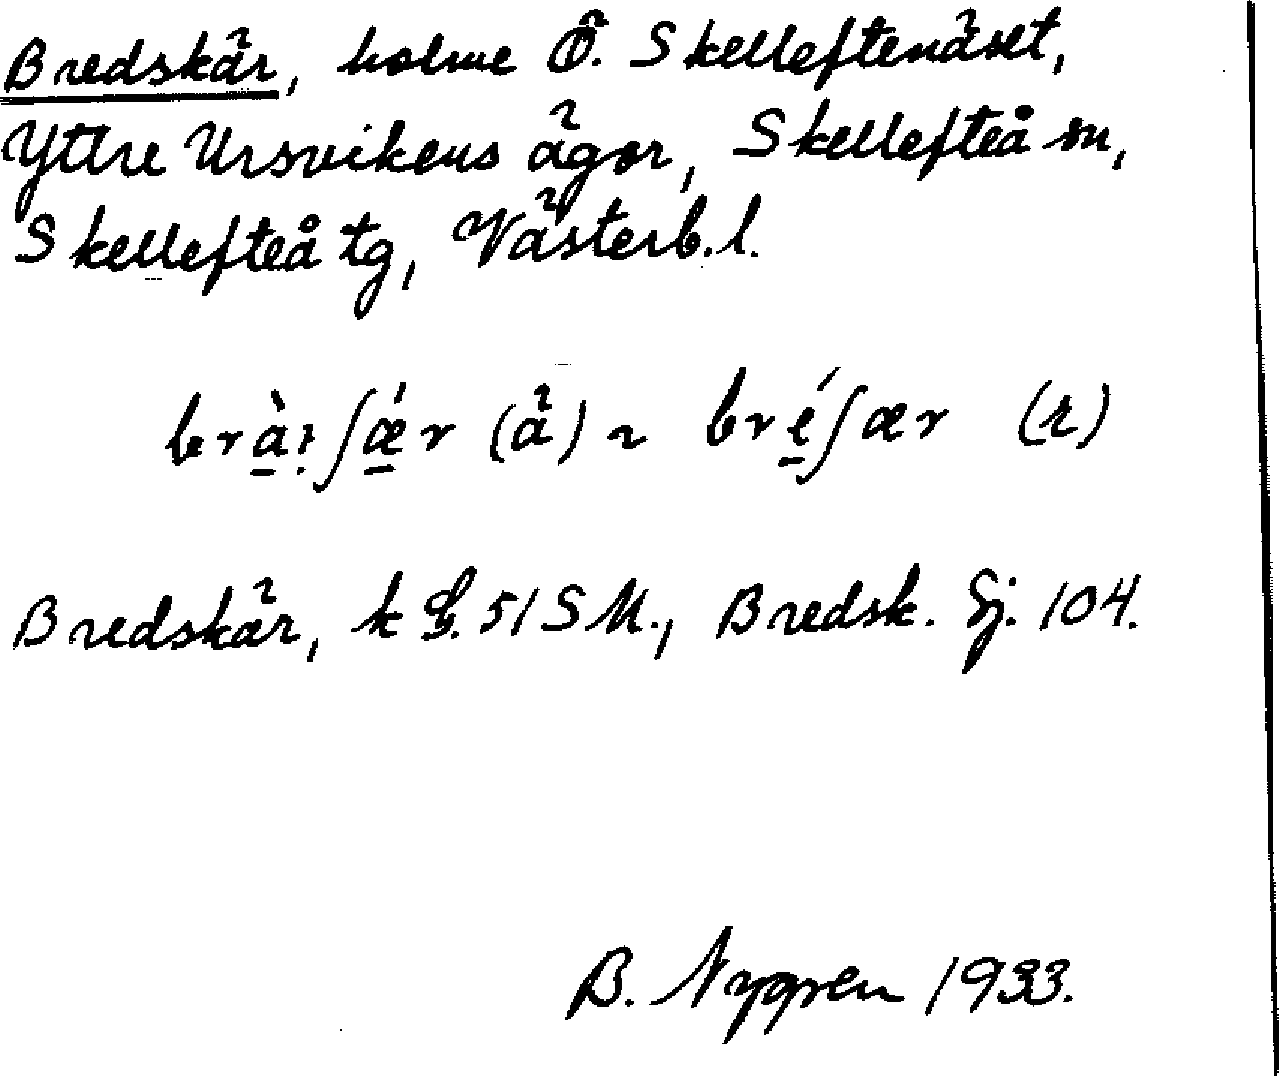 Bredskär, holme Ö. Skelleftenäset,
Yttre Ursvikens ägor, Skellefteå sn,
Skellefteå tg, Västerb. l.
brà̱ı ʃǽ̱r (ä) ~ bré̱ʃær (r)
Bredskär, k G. 51 SM., Bredsk. Sj. 104.
B. Nygren 1933.